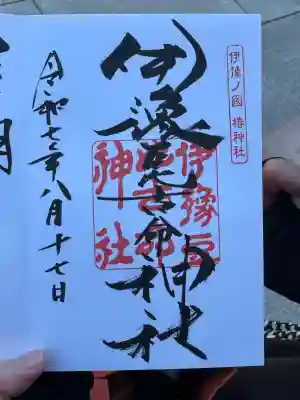 伊豫ノ國 椿神社
伊豫豆比古命神社
伊豫豆比古命神社
令和七年八月十七日
明